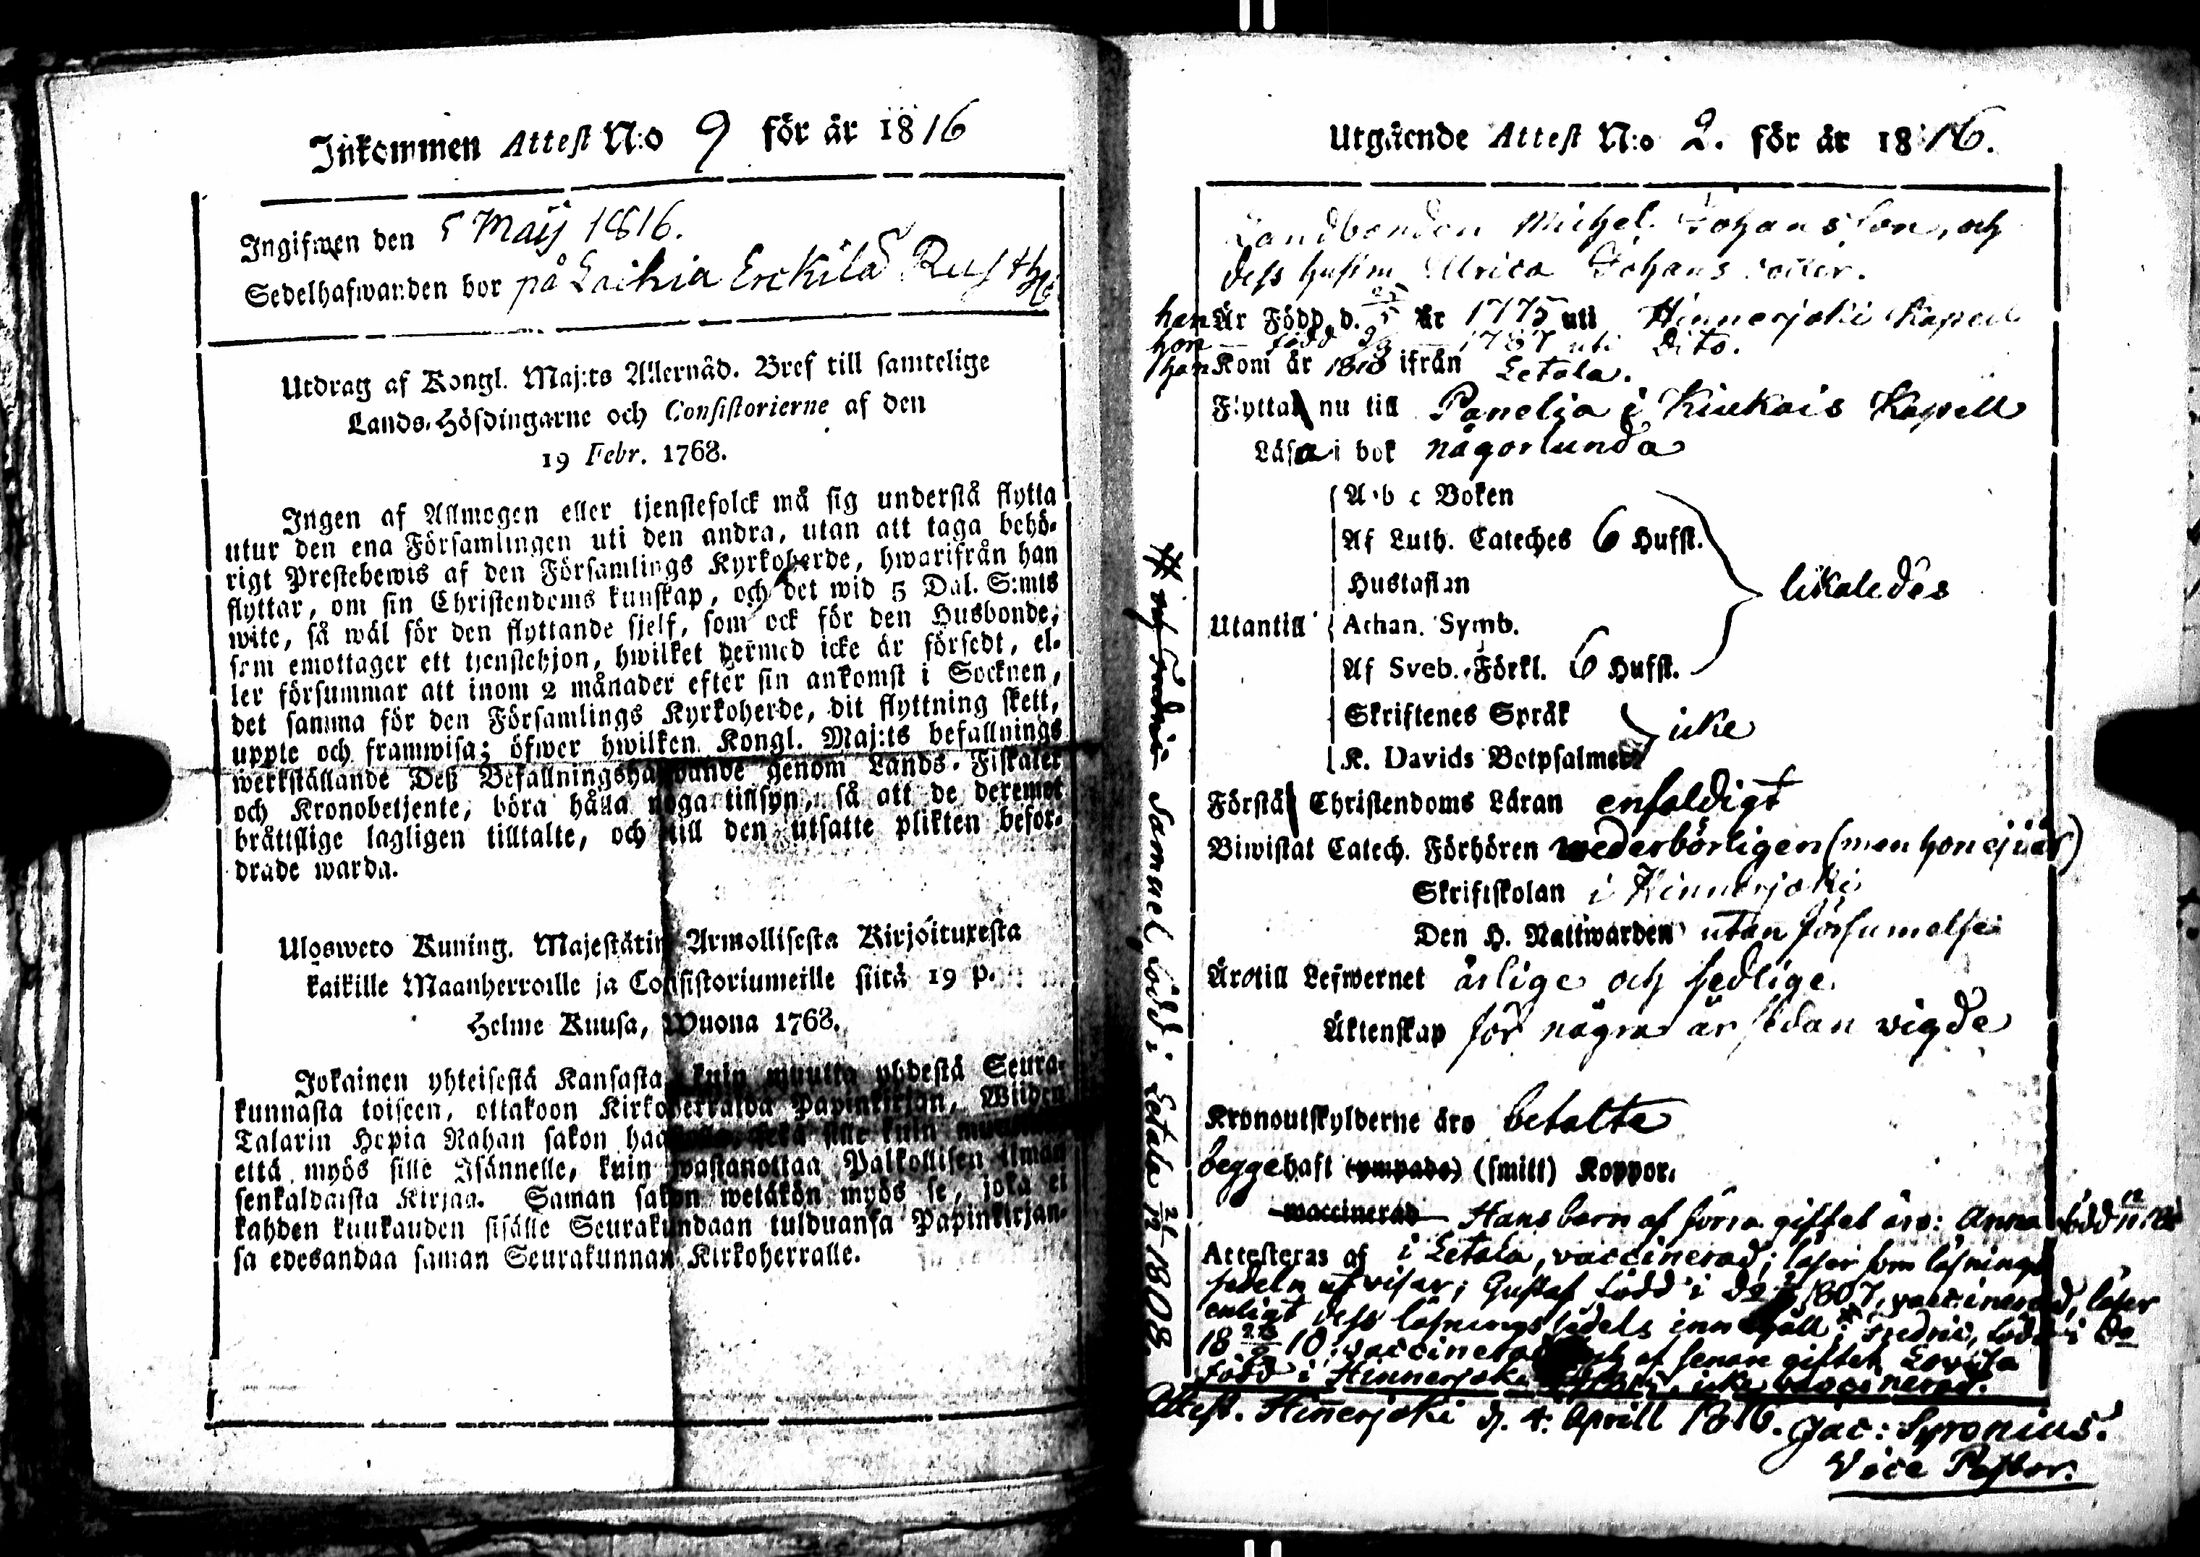 Inkommen Attest N:o 9 för år 1816
Ingifwen den 5 Maij 1816.
Sedelhafwanden bor på Laihia Erckilä Rusth
Utdrag af Kongl. Maj:ts Allernåd. Bref till samtelige
Lands-Höfdingarne och Consistorierne af den
19 Febr. 1768.
Ingen af Allmogen eller tjenstefolck må sig understå flytta
utur den ena Församlingen uti den andra, utan att taga behö-
rigt Prestebewis af den Församlings Kyrkoherde, hwarifrån han
flyttar, om sin Christendoms kunskap, och det wid 5 Dal. S:mts
wite, så wäl för den flyttande sjelf, som ock för den Husbonde,
som emottager ett tjenstehjon, hwilket dermed icke är försedt, el-
ler försummar att inom 2 månader efter sin ankomst i Socknen,
det samma för den Församlings Kyrkoherde, dit flyttning skett,
uppte och framwisa; öfwer hwilken Kongl. Maj:ts befallnings
werkställande Deß Befallningshafwande genom Lands-Fiskaler
och Kronobetjente, böra hålla noga tillsyn, så att de deremot
bråttslige lagligen tilltalte, och till den utsatte plikten befor-
drade warda.
Ulosweto Kuning. Majestätin Armollisesta Kirjoituxesta
kaikille Maanherroille ja Consistoriumeille siitä 19 p.
Helme Kuusa, Wuona 1768.
Jokainen yhteisestä Kansasta, kuin muutta yhdestä Seura-
kunnasta toiseen, ottakoon Kirkoherralda Papinkirjan, Wiiden
Talarin Hopia Rahan sakon
että myös sille Isännelle, kuin wastanottaa Palkollisen ilman
senkaldaista Kirjaa. Saman sakon wetäkön myös se, joka ei
kahden kuukauden sisälle Seurakundaan tulduansa Papinkirjan-
sa edesandaa saman Seurakunnan Kirkoherralle.
Utgående Attest N:o 2. för år 1816.
Landbonden Michel Johansson, och
dess hustru Ulrica Johans dotter.
han Är Född d. 25/5 år 1775 uti Hinnerjoki Kapell
hon — född — 1787 uti Dito.
han Kom år 1810 ifrån Letala.
Flytta nu till Panelia i Kiukais Kapell
Läsa i bok någorlunda
A b c Boken
Af Luth. Cateches 6 Hufst.
Hustaflan
Utantill Athan. Symb. likaledes
Af Sveb. Förkl. 6 Hufst.
Skriftenes Språk
icke
K. Davids Botpsalmer
Förstå Christendoms Läran enfaldigt
Biwistat Catech. Förhören wederbörligen (men hon ej här)
Skriftskolan i Hinnerjoki
Den H. Nattwarden utan försumelse
Äro till Lefwernet ärlige och sedlige.
Äktenskap för några år sedan vigde
Kronoutskylderne äro betalte
begge haft (ympade) (smitt) Koppor.
waccinerad Hans barn af förra giftet äro: Anna född
Attesteras af i Letala, vaccinerad; läser som läsnings
sedeln utvisar; Gustaf född i do 1807, vaccinerad, läser
enligt dess läsnings sedels innehåll; Fredric, född i do
18 23/9 10, vaccinerad och af senare giftet Lovisa
född i Hinnerjoki icke vaccinerad.
Attest. Hinnerjoki d. 4: Aprill 1816. Jac: Syronius.
Vice Pastor.
Samuel född i Letala 1808